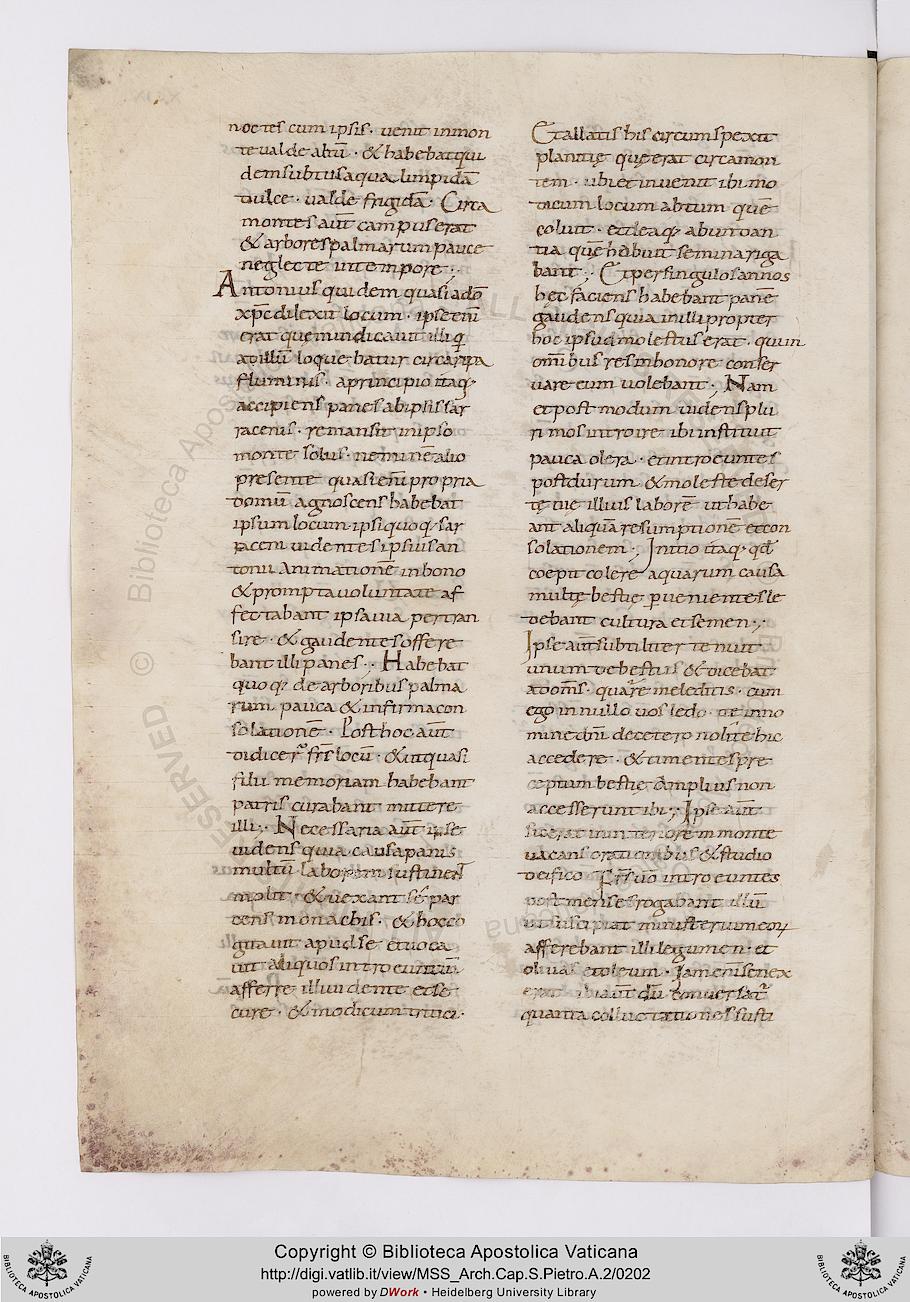 noctes cum ipsis · uenit inmon
te ualde altū · & habebat qui
dem subtus aqua limpidā
dulce · ualde frigidā · Circa
montes aūt campus erat
& arbores palmarum pauce
neglecte intempore ·,
Antonius quidem quasi a dō
xp̄e dilexit locum · ipse eni
erat quem indicauit illi q̨
ad illū loquebatur circa ripa
fluminis · a principio itaq;
accipiens panes ab ipsis sar
racenis · remansit in ipso
monte solus · neminē alio
presente quasi eni propria
domū agnoscens habebat
ipsum locum · ipsi quoq; sar
raceni uidentes ipsius an
tonii animationē in bono
& prompta uoluntate af
fectabant ipsa uia pertran
sire · & gaudentes offere
bant illi panes ·, Habebat
quoq; de arboribus palma
rum pauca & infirma con
solationē · Post hoc aūt
didicer̄ fr̄s locū · & itquasi
filii memoriam habebant
patris curabant mittere
illi ·, Necessaria aūt ipse
uidens quia causa panis
multū laborem sustinet
& uexant sē par
cens monachis · & hoc co
gitauit apud se et uoca
uit aliquos introeuntiū
afferre illi uidente et se
cure · & modicum tritici ·
Et allatis his circumspexit
planitię quę erat circa mon
tem · ubi et inuenit ibi mo
dicum locum abtum quē
coluit · et de aq; abundan
tia quē habuit semina riga
bant ·, Et per singulos annos
hęc faciens habebant panē
gaudens quia in illi propter
hoc ipsud molestus erat · qui in
omībus res in honore conser
uare eum uolebant ·, Nam
et post modum uidens plu
ri mos introire ibi instituit
pauca olera · et introeuntes
post durum & moleste deser
tę uię illius laborē ut habe
ant aliquā resumptionē et con
solationem ·, Initio itaq; qđ
coepit colere aquarum causa
multę bestię p̱uenientes le
debant cultura et semen ·,
Ipse aūt subtiliter tenuit
unum de bestiis & dicebat
ad om̄s · quare meleditis · cum
ego in nullo uos ledo ite inno
mine dn̄i de cetero nolite hic
accedere · & timentes pre
ceptum bestię amplius non
accesserunt ibi ·, Ipse aūt
sic erat in interiore in monte
uacans orationibus & studio
deifico Fr̄s uō introeuntes
post mense rogabant illū
ut suscipiat ministerium eoꝝ
afferebant illi leigumen · et
oliuas et oleum · Iam eni senex
erat ibi aūt dū conuersat̄
quanta colluctationes susti